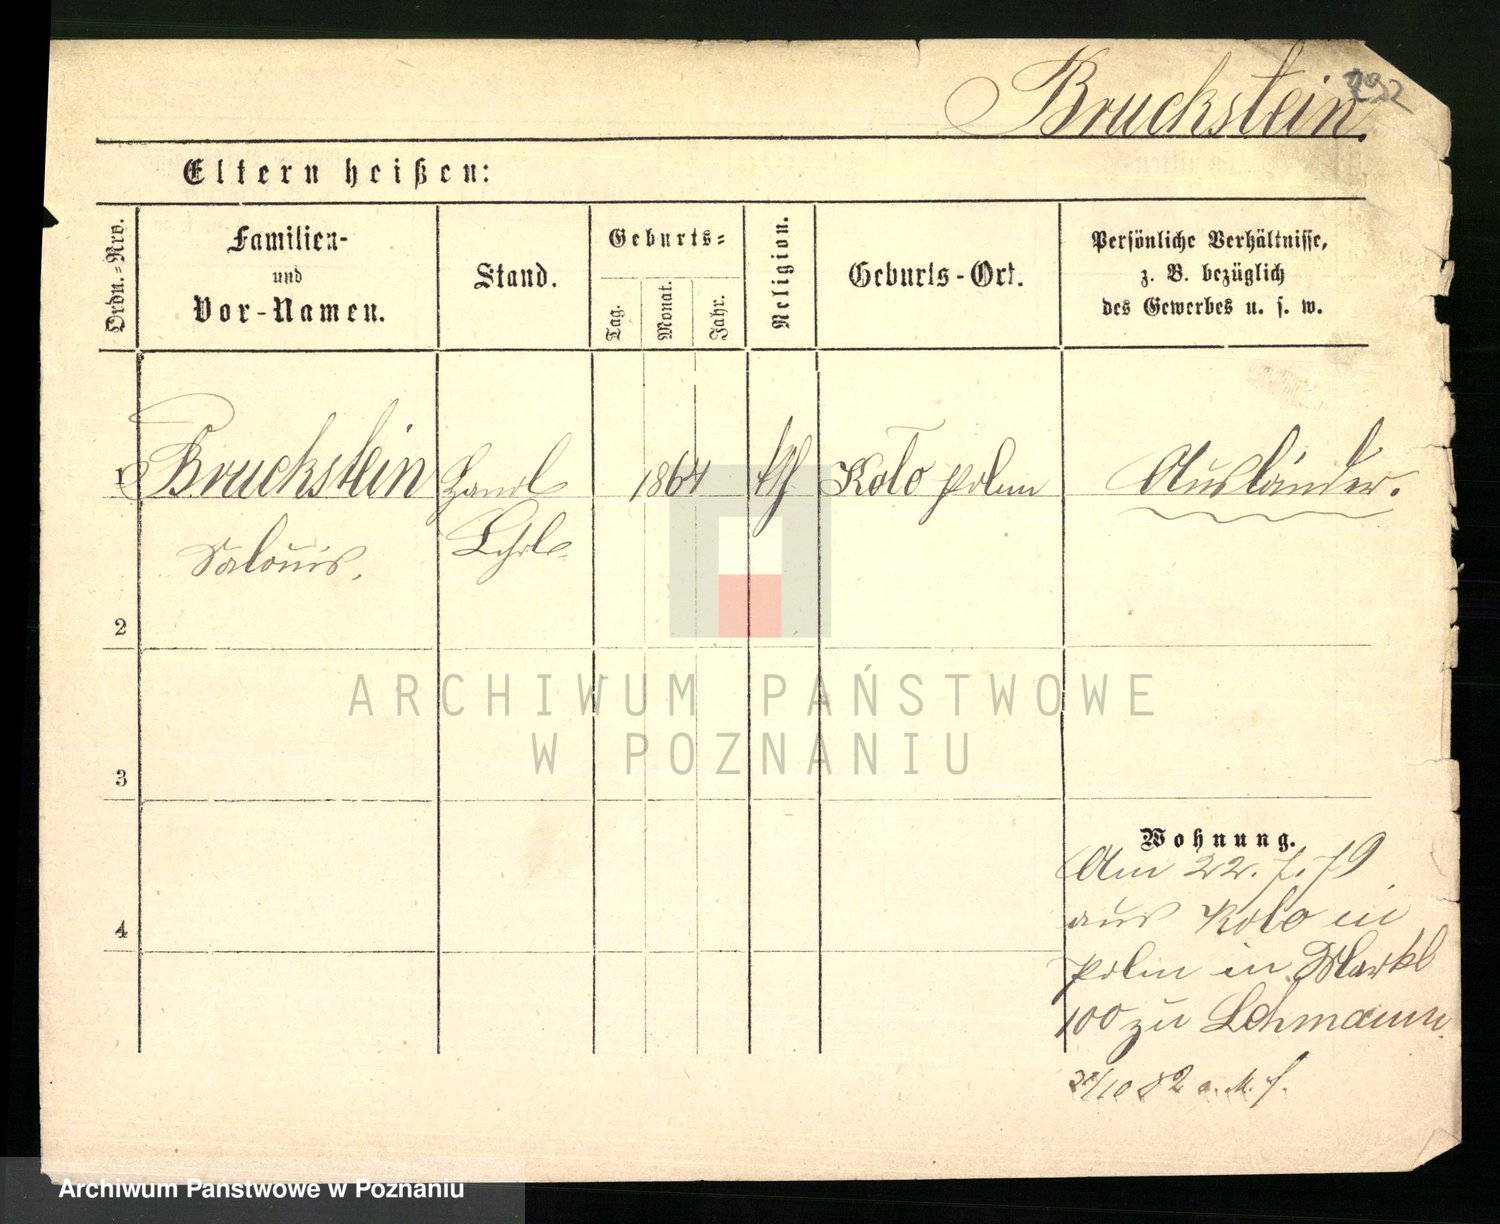 Bruckstein
292
Eltern heißen:
Ordn.-Nro.
Familien-
und
Vor-Namen.
Stand.
Geburts-
Tag.
Monat.
Jahr.
Religion.
Geburts-Ort.
Persönliche Verhältnisse,
z. B. bezüglich
des Gewerbes u. s. w.
1 Bruckstein Handl 1864 Kolo Polen Ausländer.
Lehrl.
2
3
ARCHIWUM PAŃSTWOWE
W POZNANIU
4
Wohnung.
Am 22. 7. 79
aus Kolo in
Polen in Markt
100 zu Lehmann
/10 82
Archiwum Państwowe w Poznaniu